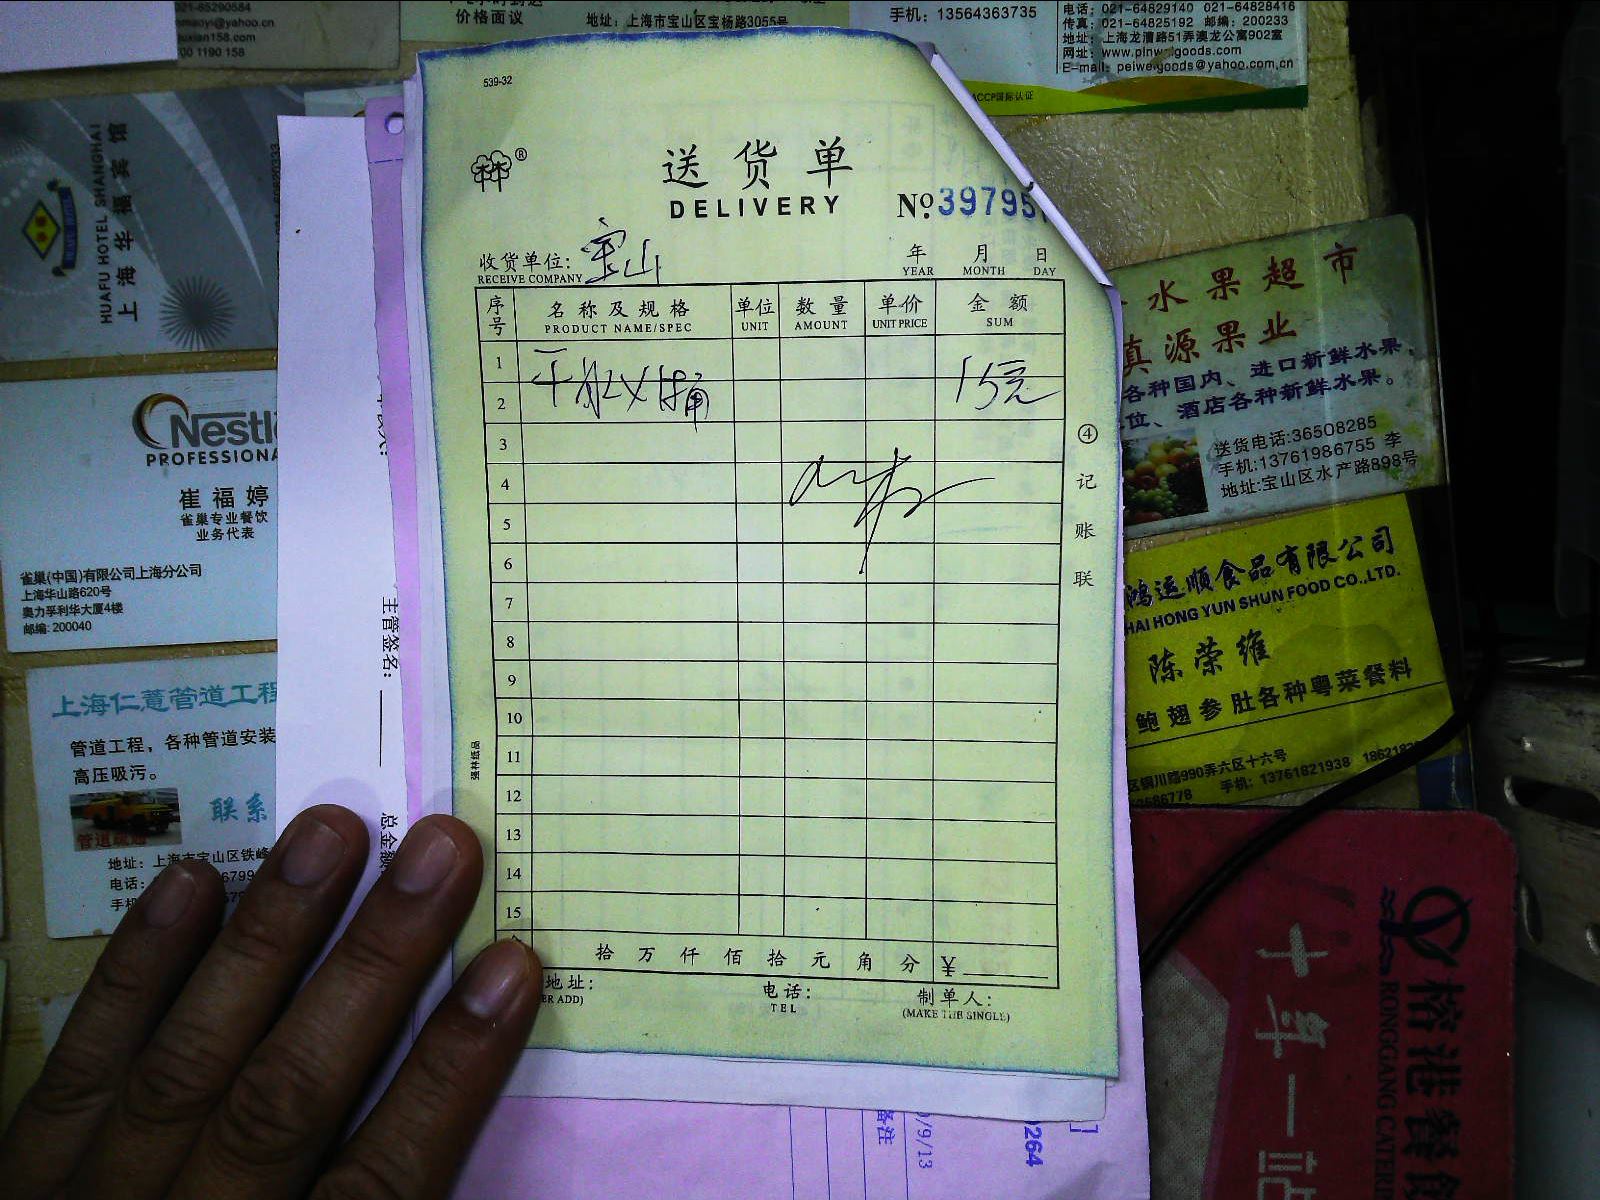 maoyi@yahoo.cn
价格面议
地址：上海市宝山区宝杨路3055号
手机：13564363735
电话：021-64829140 021-64828416
传真：021-64825192 邮编：200233
地址：上海龙漕路51弄澳龙公寓902室
E-mail: peiweigoods@yahoo.com.cn
ACCP国际认证
HUAFU HOTEL SHANGHAI
上海华福宾馆
Nestl
PROFESSIONA
崔福婷
雀巢专业餐饮
业务代表
雀巢(中国)有限公司上海分公司
上海华山路620号
奥力孚利华大厦4楼
邮编: 200040
上海仁薏管道工程
管道工程，各种管道安装
高压吸污。
联系
管道疏通
地址：上海市宝山区铁峰
电话：
手机
主管签名：
总金额
539-32
林®
送货单
DELIVERY
№ 39795
收货单位： 宝山
RECEIVE COMPANY
年 月 日
YEAR MONTH DAY
序号 名称及规格 单位 数量 单价 金额
PRODUCT NAME/SPEC UNIT AMOUNT UNIT PRICE SUM
1
2 15元
3
4
5
6
7
8
9
10
11
12
13
14
15
拾 万 仟 佰 拾 元 角 分 ¥
地址：
电话：
TEL
制单人：
(MAKE THE SINGLE)
④记账联
强林纸品
水果超市
真源果业
各种国内、进口新鲜水果，
位、酒店各种新鲜水果。
送货电话:36508285
手机:13761986755 李
地址:宝山区水产路898号
鸿运顺食品有限公司
HAI HONG YUN SHUN FOOD CO.,LTD.
陈荣维
鲍翅参肚各种粤菜餐料
区铜川路990弄六区十六号
手机: 13761821938
榕港餐飲
RONGGANG CATERIN
十年一
备注
/9/13
0264